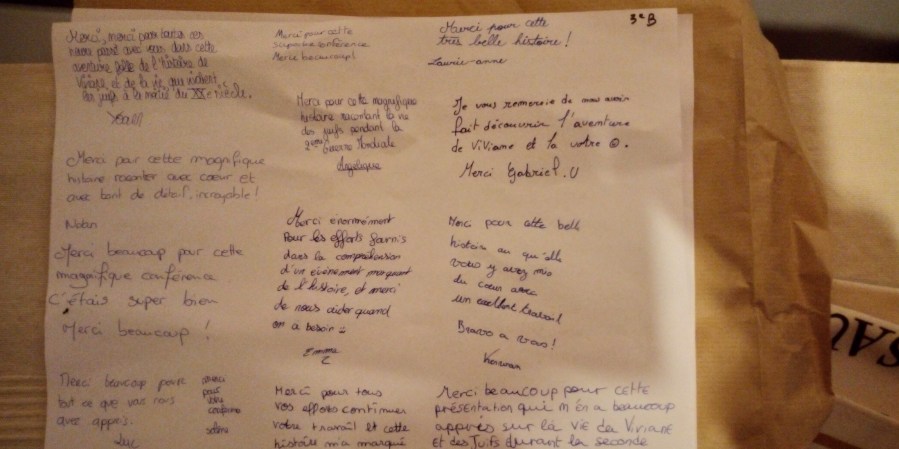 3e B
Merci, merci pour toutes ces
heures passé avec vous dans cette
aventure folle de l'histoire de
Viviane et de la vie que vivent
les juifs à la moitié du XXe siècle.
Merci pour cette
superbe conférence
Merci beaucoup!
Merci pour cette
très belle histoire!
Laurie-anne
Merci pour cette magnifique
histoire racontant la vie
des juifs pendant la
2ème Guerre Mondiale
Angelique
Je vous remercie de nous avoir
fait découvrir l'aventure
de Viviane et la votre ☺.
Merci Gabriel.U
Merci par cette magnifique
histoire raconter avec cœur et
avec tant de détail, incroyable!
Nolan
Merci énormément
Pour les efforts fournis
dans la compréhension
d'un événement marquant
de l'histoire, et merci
de nous aider quand
on a besoin
Emma
Merci pour cette belle
histoire au qu'elle
vous y avez mis
du coeur avec
un excellent travail
Bravo a vous!
Merci beaucoup pour cette
magnifique conférence
C'étais super bien
Merci beaucoup !
Merci beaucoup pour
tout ce que vous nous
avez appris.
Luc
merci
pour
votre
Merci pour tous
vos efforts continuer
votre travail et cette
histoire m'a marqué
Merci beaucoup pour cette
présentation qui m'en a beaucoup
appris sur la vie de Viviane
et des Juifs durant la seconde
SAU